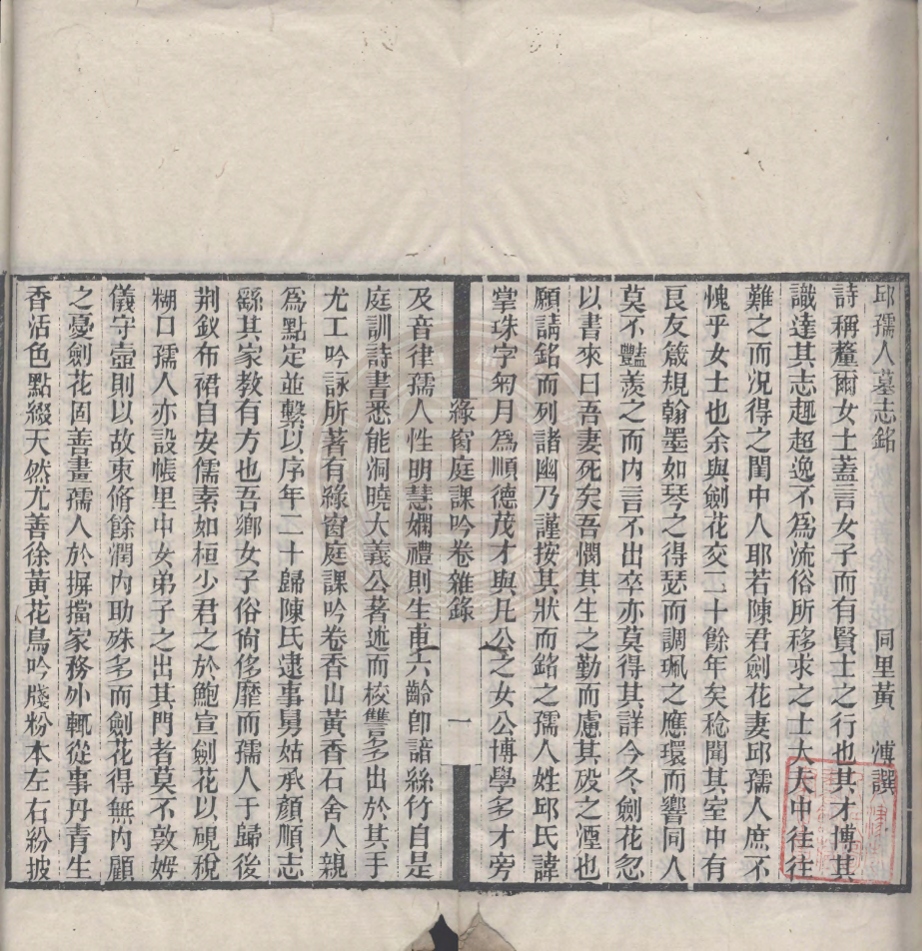 邱孺人墓志銘
同里黃 溥撰
詩稱釐爾女士蓋言女子而有賢士之行也其才傅其
識達其志趣超逸不爲流俗所移求之士大夫中往往
難之而況得之閨中人耶若陳君劍花妻邱孺人庶不
愧乎女士也余與劍花交二十餘年矣稔聞其室中有
良友箴規翰墨如琴之得瑟而調珮之應環而響同人
莫不豔羨之而內言不出卒亦莫得其詳今冬劍花忽
以書來曰吾妻死矣吾憫其生之勤而慮其殁之湮也
願請銘而列諸幽乃謹按其狀而銘之孺人姓邱氏諱
掌珠字菊月爲順德茂才與凡公之女公博學多才旁
綠窗庭課吟卷雜錄 一
及音律孺人性明慧嫻禮則生甫六齡卽諳絲竹自是
庭訓詩書悉能洞曉大義公著述而校讐多出於其手
尤工吟詠所著有綠窗庭課吟卷香山黃香石舍人親
爲點定並繫以序年二十歸陳氏逮事舅姑承顏順志
繇其家教有方也吾鄉女子俗尙侈靡而孺人于歸後
荆釵布裙自安儒素如桓少君之於鮑宣劍花以硯稅
糊口孺人亦設帳里中女弟子之出其門者莫不敦姆
儀守壼則以故束脩餘潤內助殊多而劍花得無內顧
之憂劍花固善畫孺人於摒擋家務外輒從事丹青生
香活色點綴天然尤善徐黃花鳥吟牋粉本左右紛披